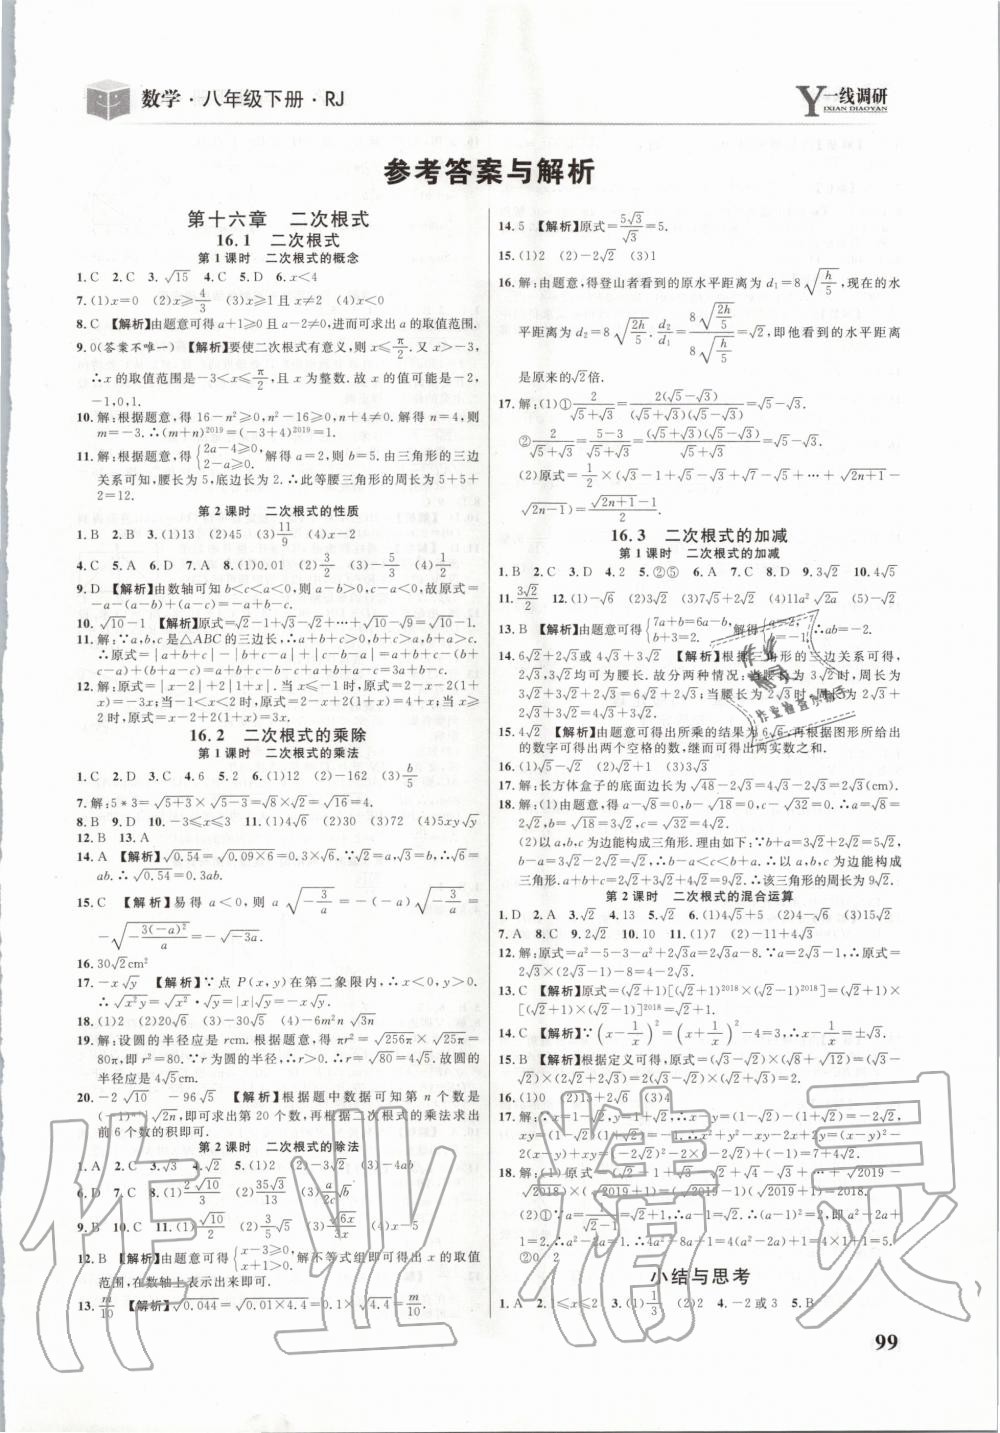 数学·八年级下册·RJ
Y一线调研
YIXIAN DIAOYAN
参考答案与解析
第十六章 二次根式
16.1 二次根式
第1课时 二次根式的概念
1.C 2.C 3.√15 4.C 5.D 6.x<4
7.(1)x=0 (2)x≥4/3 (3)x≥1且x≠2 (4)x<0
8.C 【解析】由题意可得a+1≥0且a-2≠0,进而可求出a的取值范围.
9.0(答案不唯一) 【解析】要使二次根式有意义,则x≤π/2.又x>-3,
∴x的取值范围是-3<x≤π/2,且x为整数.故x的值可能是-2,
-1,0,1.
10.解:根据题意,得16-n²≥0,n²-16≥0,n+4≠0.解得n=4,则
m=-3.∴(m+n)²⁰¹⁹=(-3+4)²⁰¹⁹=1.
11.解:根据题意,得{2a-4≥0, 2-a≥0. 解得a=2,则b=5.由三角形的三边
关系可知,腰长为5,底边长为2.∴此等腰三角形的周长为5+5+
2=12.
第2课时 二次根式的性质
1.B 2.B 3.(1)13 (2)45 (3)11/9 (4)x-2
4.C 5.A 6.D 7.A 8.(1)0.01 (2)3/2 (3)-5/3 (4)1/2
9.D 【解析】由数轴可知b<c<a<0,则a-b>0,c-a<0,故原式=
-a-(a-b)+(a-c)=-a+b-c.
10.√10-1 【解析】原式=√2-1+√3-√2+…+√10-√9=√10-1.
11.解:∵a,b,c是△ABC的三边长,∴a+b+c>0,b+c>a,a+b>c.
∴原式=|a+b+c|-|b+c-a|+|c-b-a|=a+b+c-(b+
c-a)+(b+a-c)=a+b+c-b-c+a+b+a-c=3a+b-c.
12.解:原式=|x-2|+2|1+x|.当x≤-1时,原式=2-x-2(1+
x)=-3x;当-1<x<2时,原式=2-x+2(1+x)=4+x;当x≥
2时,原式=x-2+2(1+x)=3x.
16.2 二次根式的乘除
第1课时 二次根式的乘法
1.C 2.D 3.C 4.6 5.2 6.(1)12 (2)-162 (3)b/5
7.解:5*3=√(5+3)×√(5-3)=√8×√2=√16=4.
8.B 9.D 10.-3≤x≤3 11.(1)4√6 (2)30 (3)72 (4)5xy√y
12.B 13.A
14.A 【解析】√0.54=√(0.09×6)=0.3×√6.∵√2=a,√3=b,∴√6=
ab.∴√0.54=0.3ab.
15.C 【解析】易得a<0,则a√(-3/a)=-(-a)√(-3/a)=
-√(-3(-a)²/a)=-√(-3a).
16.30√2cm²
17.-x√y 【解析】∵点P(x,y)在第二象限内,∴x<0,y>0.
∴√(x²y)=√x²·√y=|x|√y=-x√y.
18.(1)2 (2)20√6 (3)-30√5 (4)-6m²n√3n
19.解:设圆的半径应是rcm.根据题意,得πr²=√256π×√25π=
80π,即r²=80.∵r为圆的半径,∴r>0.∴r=√80=4√5.故圆的
半径应是4√5cm.
20.-2√10 -96√5 【解析】根据题中数据可知第n个数是
(-1)ⁿ·√2n,即可求出第20个数,再根据二次根式的乘法求出
前6个数的积即可.
第2课时 二次根式的除法
1.A 2.C 3.√3 4.√2 5.(1)2 (2)-3√2 (3)-4ab
6.D 7.C 8.(1)2√10/3 (2)35√3/13 (3)a/2c√b
9.B 10.C 11.(1)√10/2 (2)3/5√5 (3)√6x/3x (4)x-5
12.B 【解析】由题意可得{x-3≥0, x+1>0. 解不等式组即可得出x的取值
范围,在数轴上表示出来即可.
13.m/10 【解析】√0.044=√(0.01×4.4)=0.1×√4.4=m/10.
14.5 【解析】原式=5√3/√3=5.
15.(1)2 (2)-2√2 (3)1
16.解:由题意,得登山者看到的原水平距离为d₁=8√(h/5),现在的水
平距离为d₂=8√(2h/5).d₂/d₁=8√(2h/5)/8√(h/5)=√2,即他看到的水平距离
是原来的√2倍.
17.解:(1)①2/(√5+√3)=2(√5-√3)/(√5+√3)(√5-√3)=√5-√3.
②2/(√5+√3)=(5-3)/(√5+√3)=(√5+√3)(√5-√3)/(√5+√3)=√5-√3.
(2)原式=1/2×(√3-1+√5-√3+√7-√5+…+√(2n+1)-
√(2n-1))=(√(2n+1)-1)/2.
16.3 二次根式的加减
第1课时 二次根式的加减
1.B 2.C 3.D 4.2 5.②⑤ 6.A 7.C 8.D 9.3√2 10.4√5
11.3√2/2 12.(1)-√6 (2)3√2 (3)7√5+√2 (4)11a²√2a (5)-√2
13.B 【解析】由题意可得{7a+b=6a-b, b+3=2. 解得{a=2, ∴ab=-2.
14.6√2+2√3或4√3+3√2 【解析】根据三角形的三边关系可得,
2√3,3√2均可为腰长.故分两种情况:当腰长为3√2时,周长为
3√2+3√2+2√3=6√2+2√3;当腰长为2√3时,周长为2√3+
2√3+3√2=4√3+3√2.
15.4√2 【解析】由题意可得出所乘的结果为6√6,再根据图形所给出
的数字可得出两个空格的数,继而可得出两实数之和.
16.(1)√5-√2 (2)√2+1 (3)3√3
17.解:长方体盒子的底面边长为√48-2√3=4√3-2√3=2√3(cm).
18.解:(1)由题意,得a-√8=0,b-√18=0,c-√32=0.∴a=√8=
2√2,b=√18=3√2,c=√32=4√2.
(2)以a,b,c为边能构成三角形.理由如下:∵b+a=3√2+2√2=5√2,
b-a=3√2-2√2=√2,∴b-a<c<b+a.∴以a,b,c为边能构成
三角形.a+b+c=2√2+3√2+4√2=9√2.∴该三角形的周长为9√2.
第2课时 二次根式的混合运算
1.D 2.A 3.√2 4.13 5.√2 6.(1)4√5+5 (2)4-√6 (3)15√2
7.A 8.C 9.2√2 10.10 11.(1)7 (2)-11+4√3
12.解:原式=a²-5-3-a²+2√3a=2√3a-8.∵a=2√3-1,∴原式=
2√3×(2√3-1)-8=4-2√3.
13.C 【解析】原式=(√2+1)[(√2+1)²⁰¹⁸×(√2-1)²⁰¹⁸]=(√2+1)×
[(√2+1)×(√2-1)]²⁰¹⁸=√2+1.
14.C 【解析】∵(x-1/x)²=(x+1/x)²-4=3,∴x-1/x=±√3.
15.B 【解析】根据定义可得,原式=(√3-√2)×(√8+√12)=(√3-
√2)×(2√2+2√3)=2×(√3-√2)×(√3+√2)=2.
16.(1)0 (2)13+2√6 (3)4
17.解:∵x=1-√2,y=1+√2,∴x-y=(1-√2)-(1+√2)=-2√2,
xy=(1-√2)(1+√2)=-1.∴x²+y²-xy-2x+2y=(x-y)²-
2(x-y)+xy=(-2√2)²-2×(-2√2)+(-1)=7+4√2.
18.解:(1)原式=(√2-1+√3-√2+√4-√3+…+√2019-
√2018)×(√2019+1)=(√2019-1)(√2019+1)=2018.
(2)①∵a=1/(√2-1)=√2+1,∴a-1=√2.∴(a-1)²=2,即a²-2a+
1=2.∴a²-2a=1.∴4a²-8a+1=4(a²-2a)+1=4×1+1=5.
②0 2
小结与思考
1.A 2.1≤x≤2 3.(1)1/3 (2)2 4.-2或3 5.B
99
作业精灵